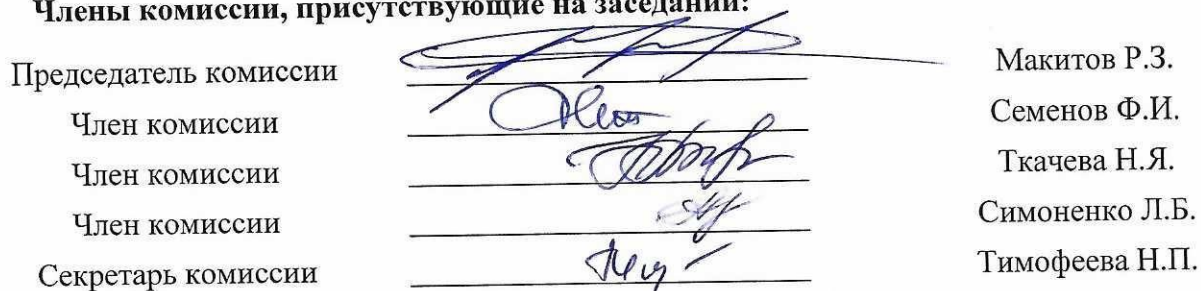 Члены комиссии, присутствующие на заседании:
Председатель комиссии Макитов Р.З.
Член комиссии Семенов Ф.И.
Член комиссии Ткачева Н.Я.
Член комиссии Симоненко Л.Б.
Секретарь комиссии Тимофеева Н.П.